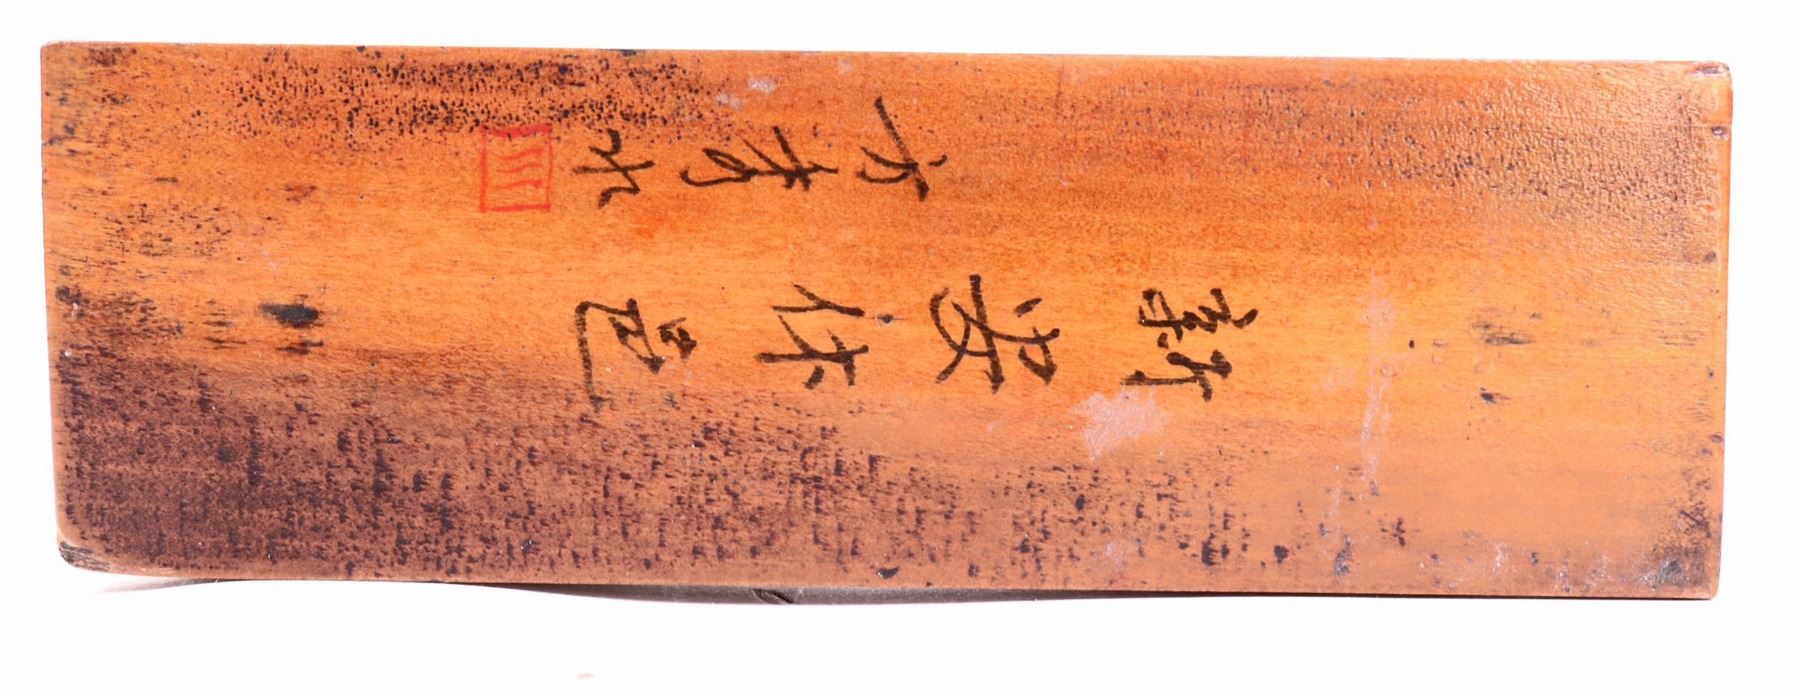 新安休邑
方秀水